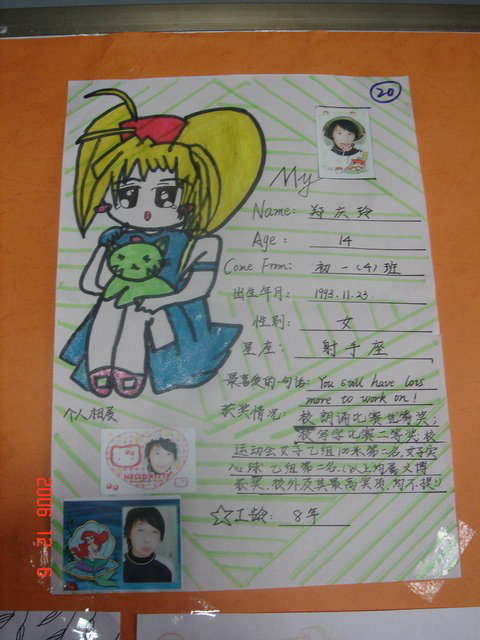 20
My
Name: 郑庆玲
Age: 14
Come From: 初一(4)班
出生年月: 1993.11.23
性别: 女
星座: 射手座
最喜爱的一句话: You still have lots
more to work on!
获奖情况: 校朗诵比赛优赛奖;
校写字比赛二等奖 校
运动会女子乙组100米第二名,女子实
心球乙组第二名.(以上均属文博
获奖,校外及其最高奖项,均不提)
☆工龄: 8年
个人相展
2006 12 6